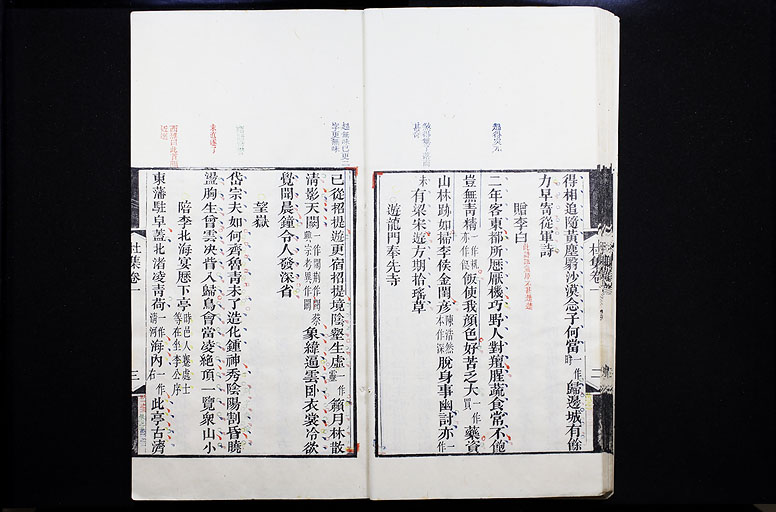 得相追隨黃塵翳沙漠念子何當一作時歸邊城有餘
力早寄從軍詩
贈李白
二年客東都所歷厭機巧野人對羶腥蔬食常不飽
豈無青精飯使我顏色好苦乏大一作買藥資
山林跡如掃李侯金閨彥脫身事幽討亦一作
未有梁宋遊方期拾瑤草
遊龍門奉先寺
已從招提遊更宿招提境陰壑生虛一作靈籟月林散
清影天闕象緯逼雲臥衣裳冷欲
覺聞晨鐘令人發深省
望嶽
岱宗夫如何齊魯青未了造化鍾神秀陰陽割昏曉
盪胸生曾雲決眥入歸鳥會當凌絕頂一覽眾山小
陪李北海宴歷下亭時邑人蹇處士等在坐李公序
東藩駐皁蓋北渚凌青荷一作清河海內一作右此亭古濟
杜集卷一
三
二